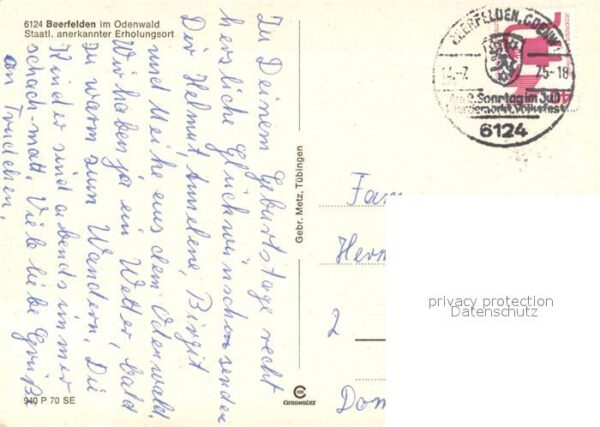 6124 Beerfelden im Odenwald
Staatl. anerkannter Erholungsort
Zu Deinem Geburtstage recht
herzliche Glückwünsche senden
Dir Helmut, Annelene, Birgit
und Heike aus dem Odenwald.
Wir haben ja ein Wetter, bald
zu warm zum Wandern. Die
Kinder sind abends immer
schach-matt. Viele liebe Grüße
an Trudchen.
940 P 70 SE
Gebr. Metz, Tübingen
BEERFELDEN, ODENW
75-18
Am 2. Sonntag im Juli
Pferdemarkt, Volksfest
6124
Fam
Herm
2
Dom
privacy protection
Datenschutz